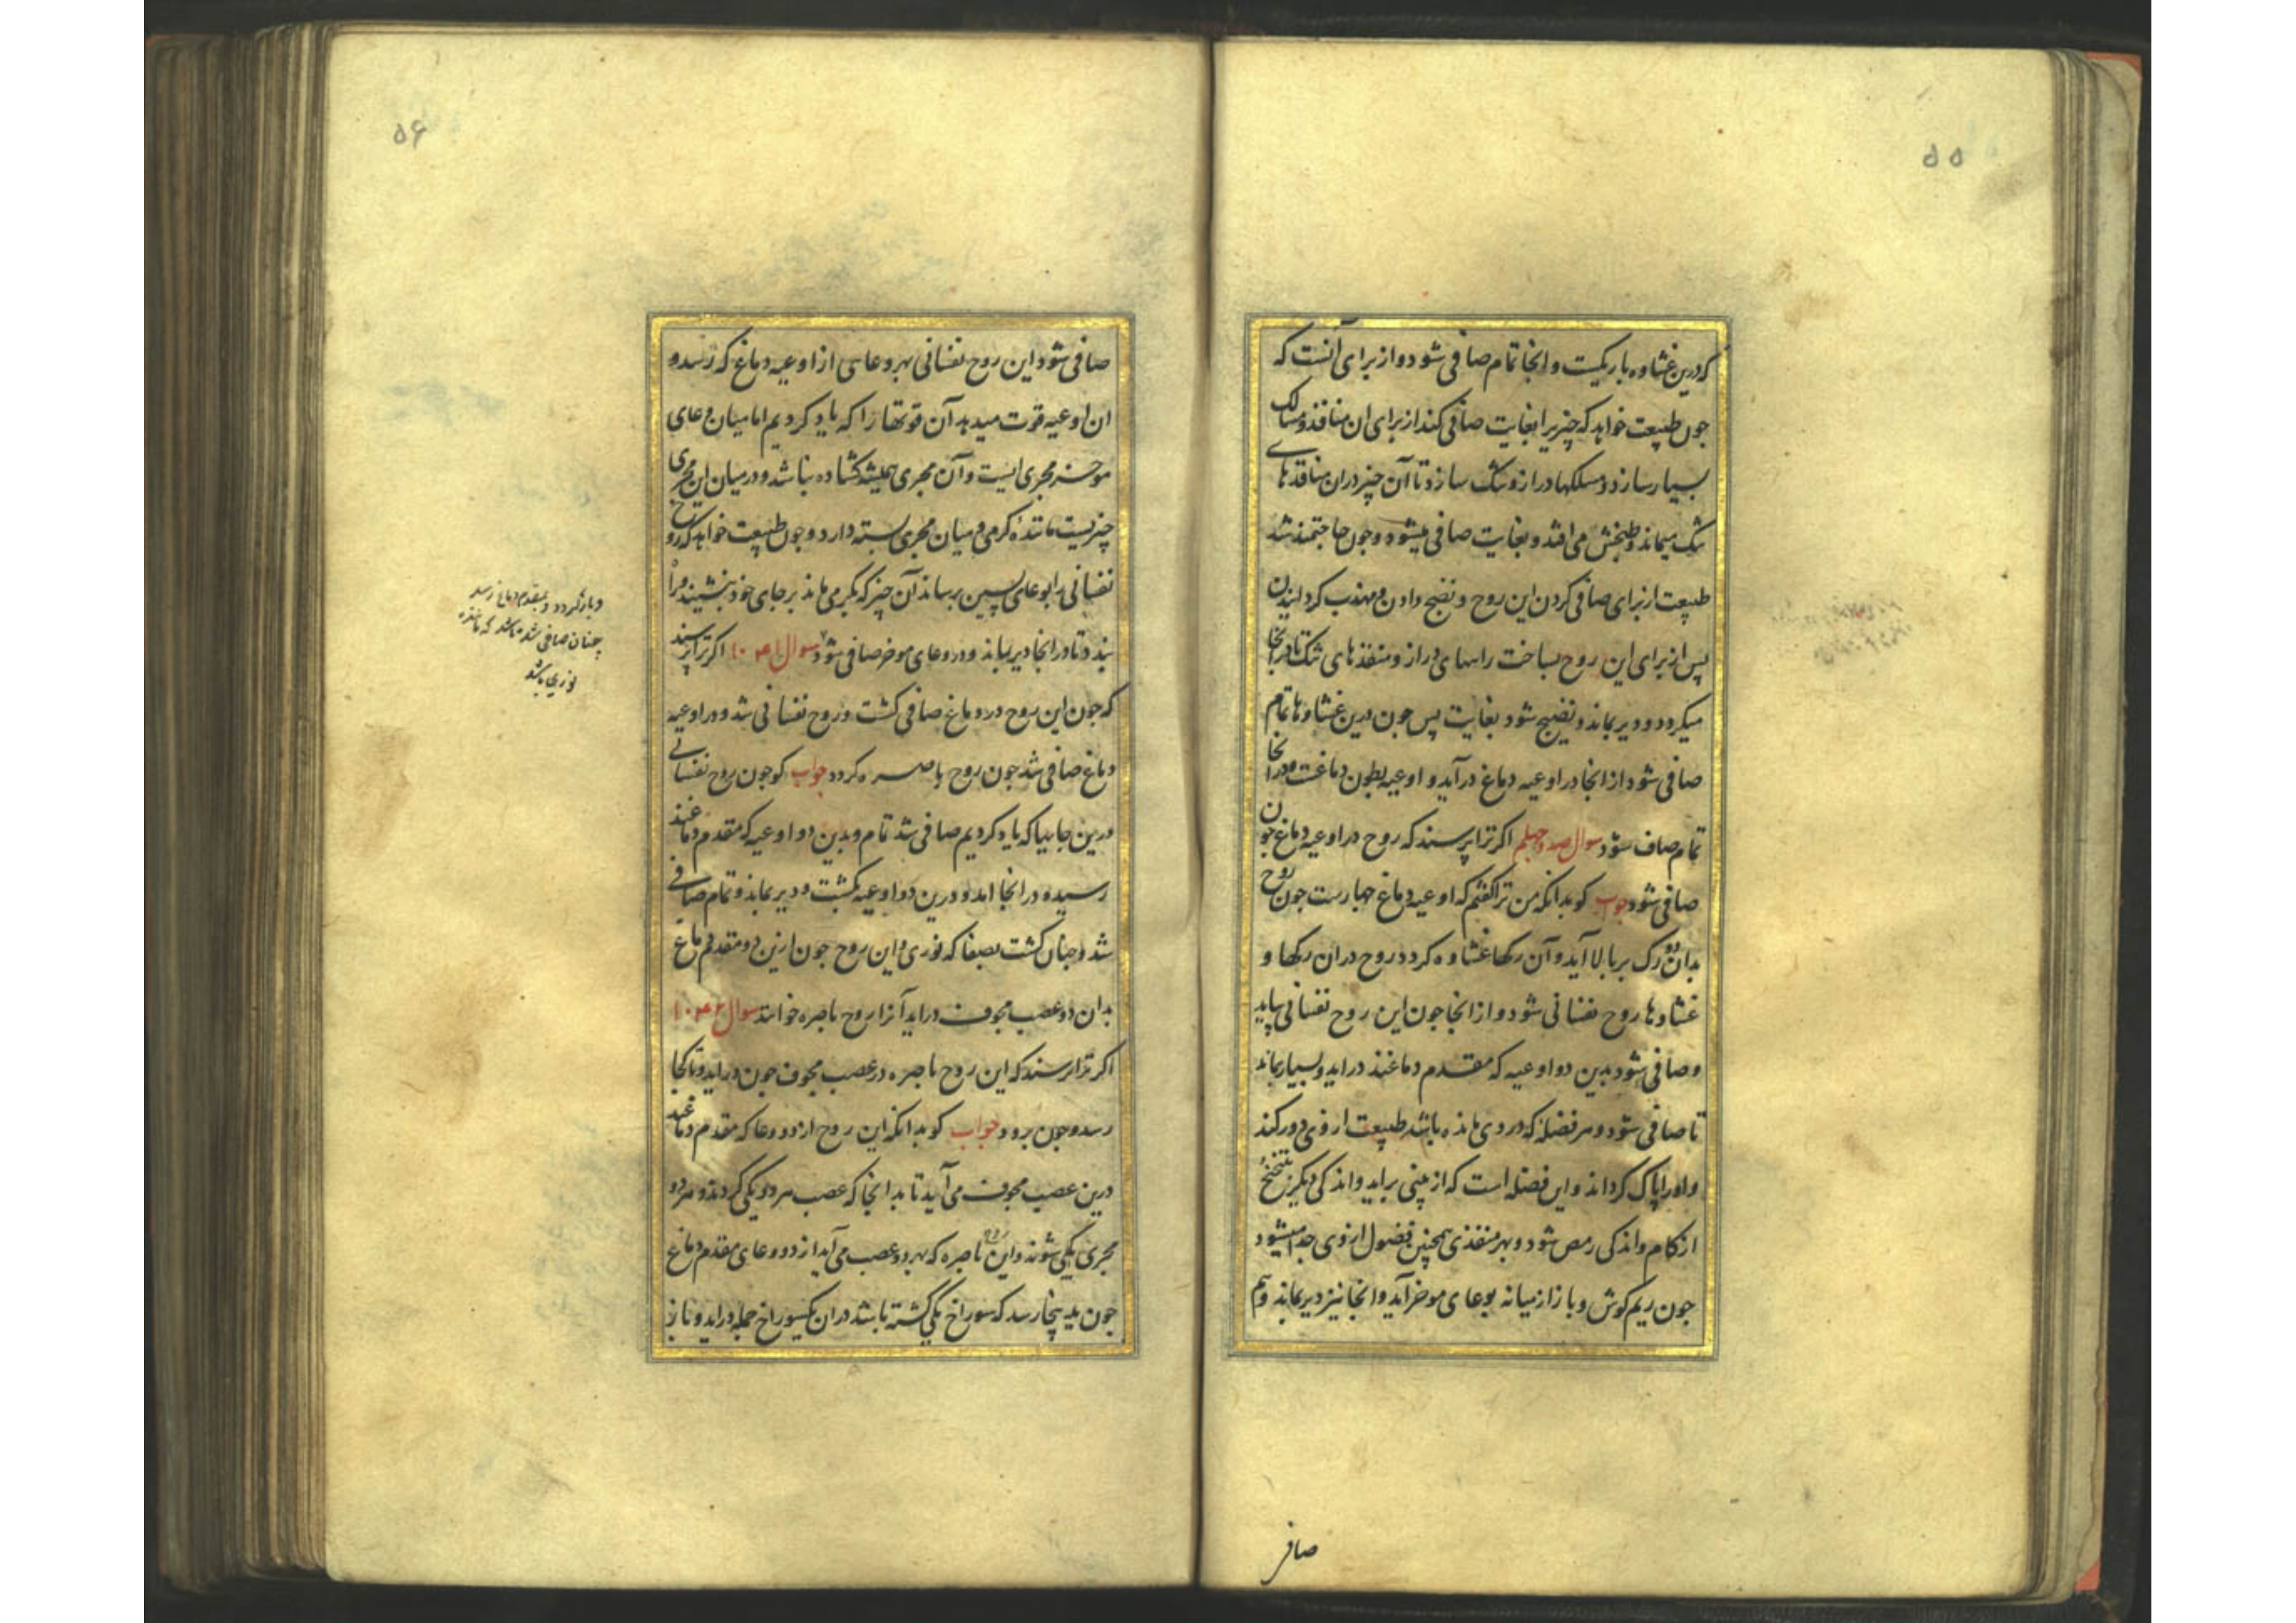 ۵۵
که درین غشاوه باریکیست و انجا تمام صافی شود و از برای آنست که
جون طبیعت خواهد که چیزیرا بغایت صافی کند از برای ان منافذ و مسالک
بسیار سازد و مسلکها دراز و تنک سازد تا آن چیز دران منافذهای
تنک میماند و طبخش می افتد و بغایت صافی میشود و جون حاجتمند شد
طبیعت از برای صافی کردن این روح و نضج دادن و مهذب کردانیدن
پس از برای این روح بساخت راههای دراز و منفذهای تنک تا در انجا
میکردد و دیر بماند و نضیج شود بغایت پس جون درین غشاوها تمام
صافی شود از انجا در اوعیه دماغ درآید و اوعیه بطون دماغست و در انجا
تمام صاف شود سوال صد و چهلم اکر ترا پرسند که روح در اوعیه دماغ جون
صافی شود جواب کو بدانکه من ترا کفتم که اوعیه دماغ چهارست جون روح
بدان دو رک بر بالا آید و آن رکها غشاوه کردد روح دران رکها و
غشاوها روح نفسانی شود و از انجا جون این روح نفسانی بیاید
و صافی شود بدین دو اوعیه که مقدم دماغند دراید و بسیار بماند
تا صافی شود و هر فضله که در وی مانده باشد طبیعت از وی دور کند
و اورا پاک کرداند و این فضله است که از بینی براید و اندکی دیکر بتنخنح
از کام و اندکی رمص شود و بهر منفذی همچنین فضول از وی جدا میشود
جون ریم کوش و باز از میانه بوعای موخر آید و انجا نیز دیر بماند و تمام
صافی
۵۶
صافی شود این روح نفسانی بهر وعایی از اوعیه دماغ که رسد و
ان اوعیه قوت میدهد آن قوتها را که یاد کردیم اما میان وعای
موخر مجری ایست و آن مجری همیشه کشاده نباشد و در میان این مجری
چیزیست مانند کرمی و میان مجری بسته دارد و جون طبیعت خواهد که روح
نفسانی را بوعای پسین برساند آن چیز که بکرم می ماند بر جای خود بنشیند و را
بندد تا در انجا دیر بماند و در وعای موخر صافی شود سوال ۱۰۴۱ اکر ترا پرسند
که جون این روح در دماغ صافی کشت و روح نفسانی شد و در اوعیه
دماغ صافی شد جون روح باصره کردد جواب کو جون روح نفسانی
درین جایها که یاد کردیم صافی شد تمام و بدین دو اوعیه که مقدم دماغند
رسیده در انجا امد و درین دو اوعیه بکشت و دیر بماند و تمام صافی
شد و چنان کشت بصفا که نوری و این روح جون ازین دو مقدم دماغ
بدان دو عصب مجوف دراید آنرا روح باصره خوانند سوال ۱۰۴۲
اکر ترا پرسند که این روح باصره در عصب مجوف جون دراید و تا کجا
رسد و جون برود جواب کو بدانکه این روح از دو وعا که مقدم دماغند
درین عصب مجوف می آید تا بدانجا که عصب هر دو یکی کردند و هر دو
مجری یکی شوند و این روح باصره که بهر دو عصب می آید از دو وعای مقدم دماغ
جون بدینجا رسد که سوراخ یکی کشته باشد دران یکسوراخ جمله دراید و باز
و باز کردد و بمقدم دماغ رسد
چنان صافی شده باشد که مانند
نوری باشد